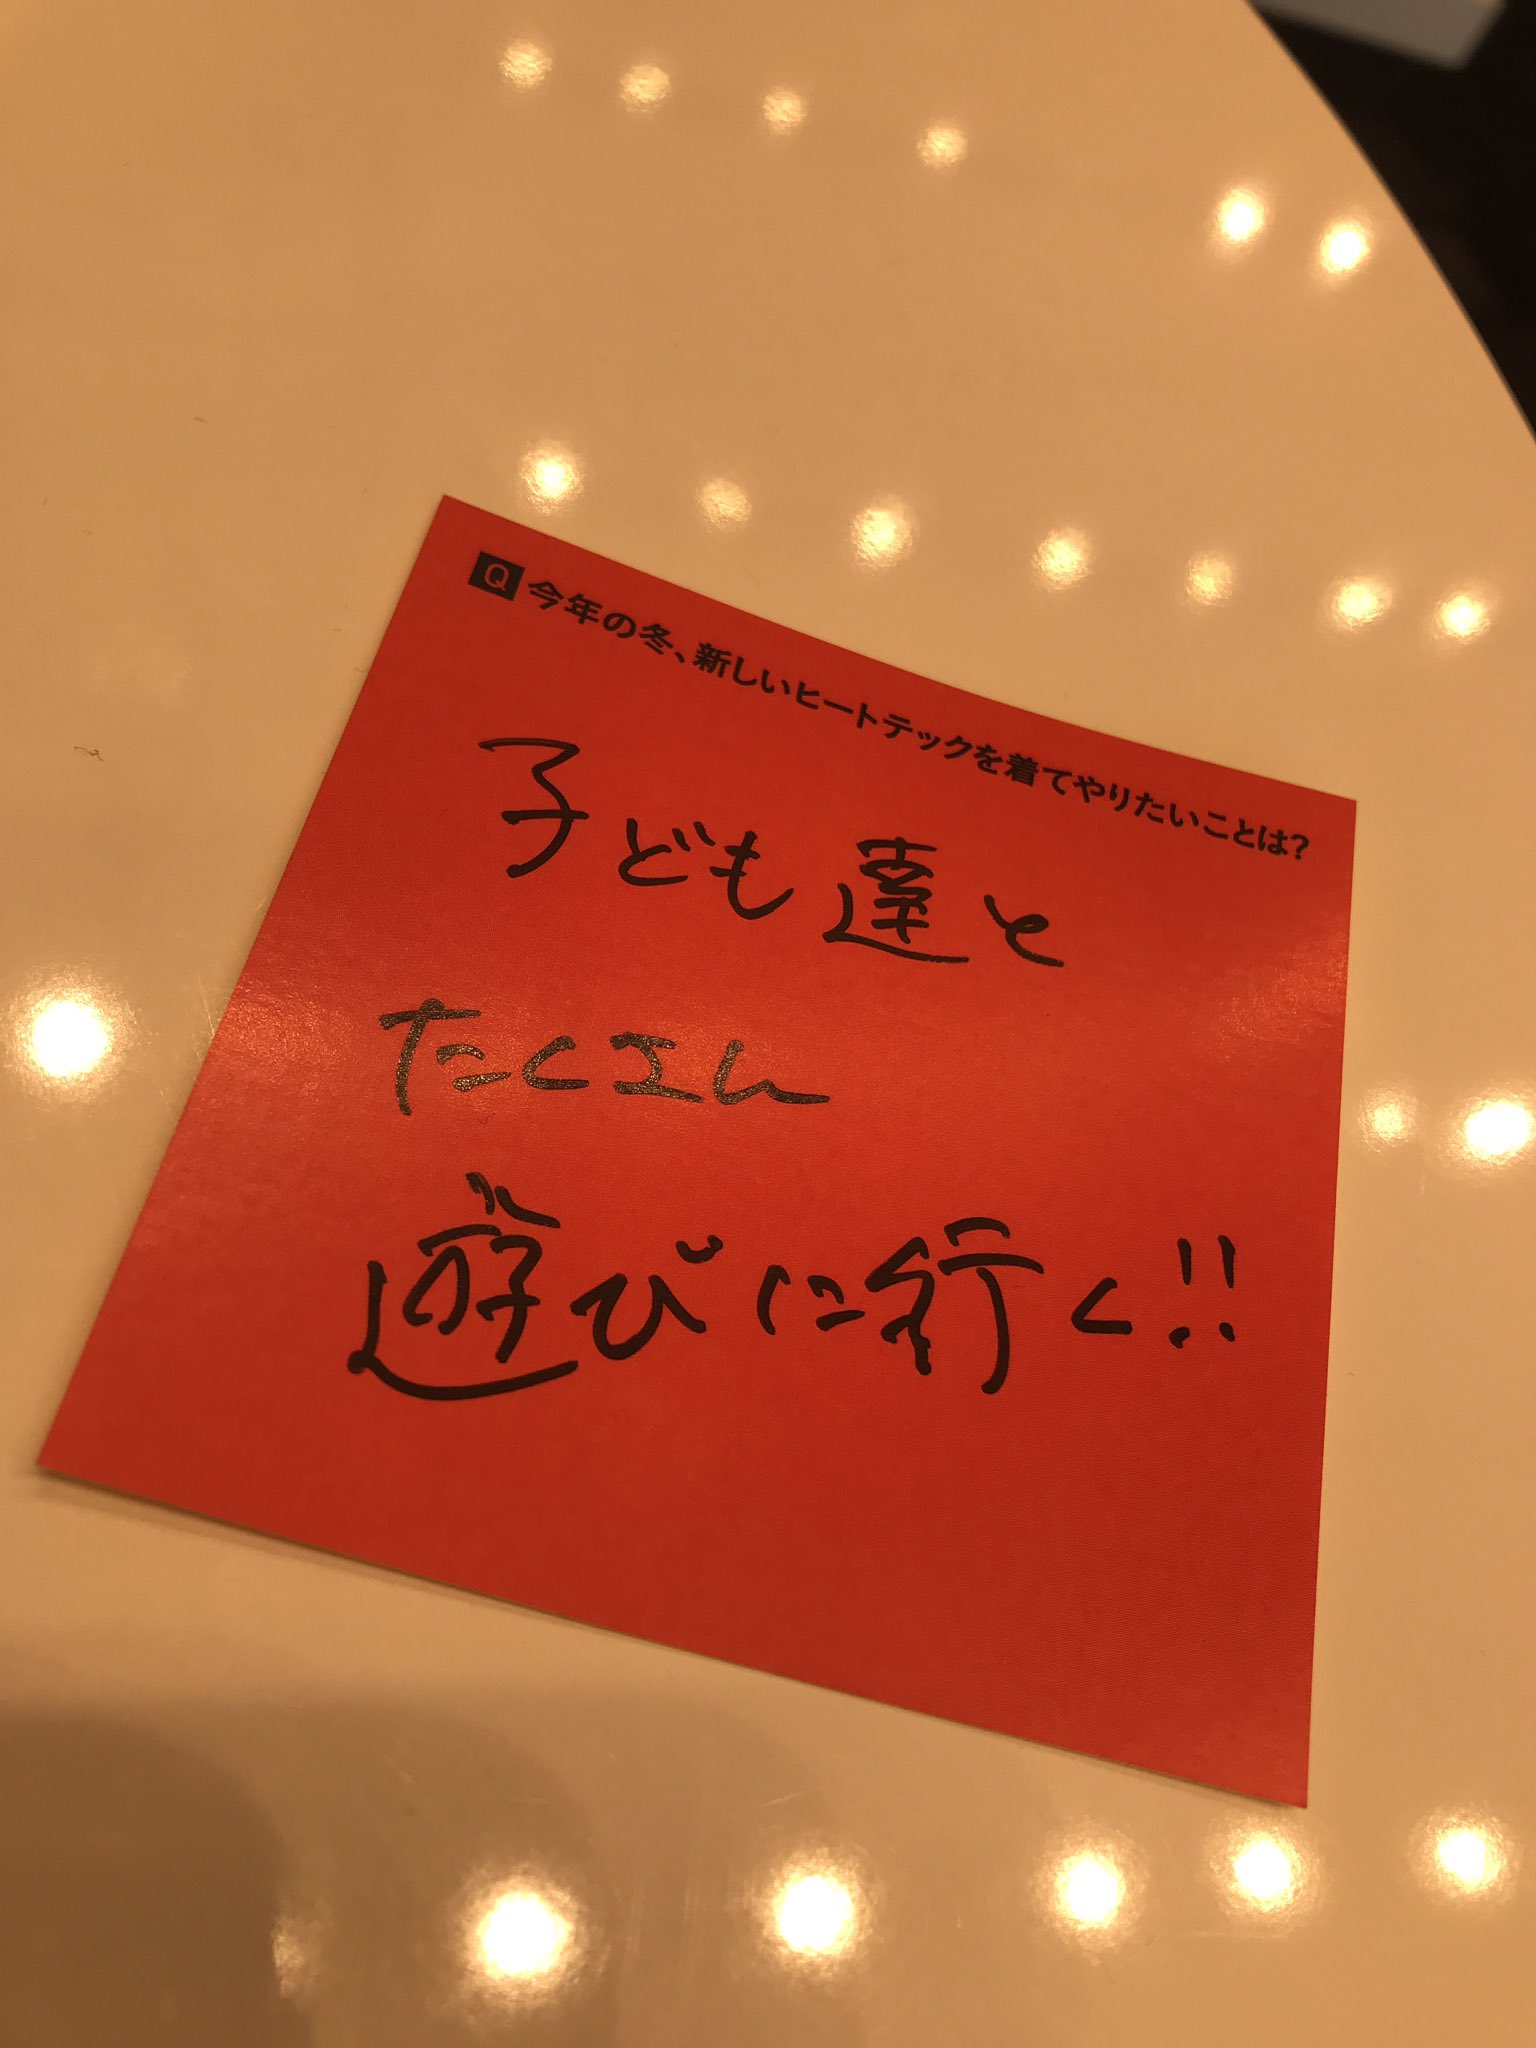 Q 今年の冬、新しいヒートテックを着てやりたいことは?
子ども達と
たくさん
遊びに行く!!